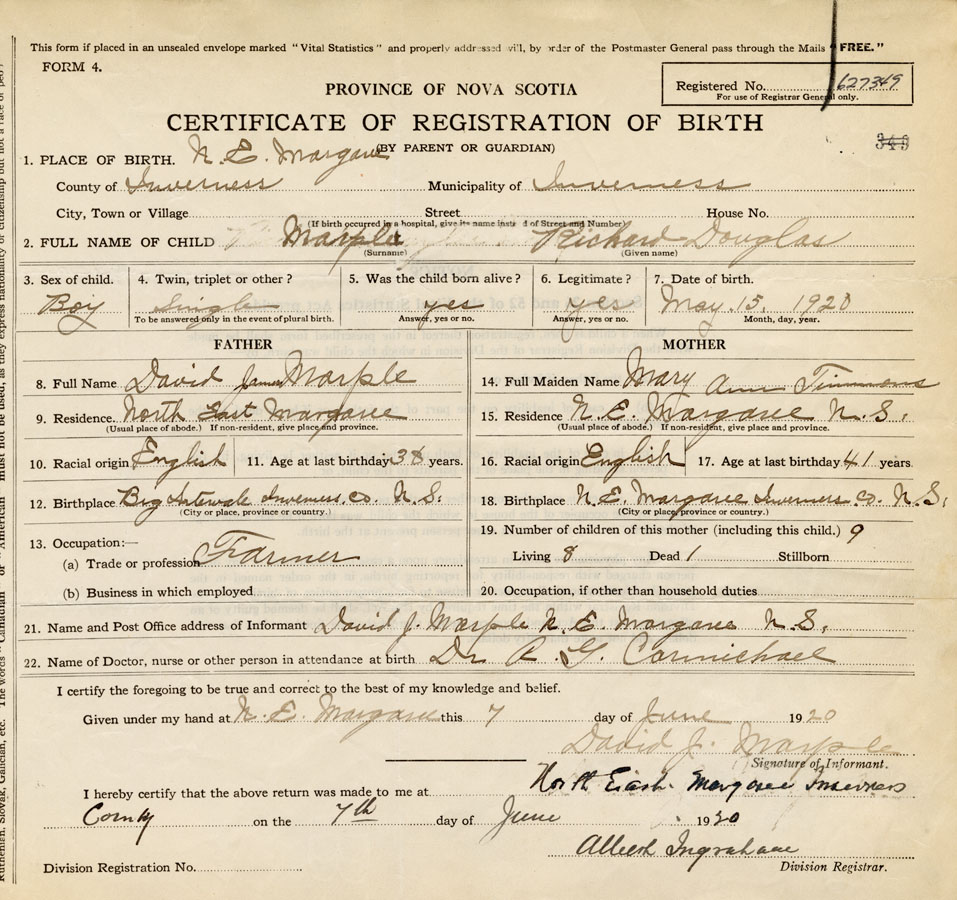 This form if placed in an unsealed envelope marked "Vital Statistics" and properly addressed will, by order of the Postmaster General pass through the Mails "FREE."
FORM 4.
Registered No. 627349
For use of Registrar General only.
PROVINCE OF NOVA SCOTIA
CERTIFICATE OF REGISTRATION OF BIRTH
(BY PARENT OR GUARDIAN)
343
1. PLACE OF BIRTH. N. E. Margaree
County of Inverness Municipality of Inverness
City, Town or Village Street House No.
(If birth occurred in a hospital, give its name instead of Street and Number)
2. FULL NAME OF CHILD Marple Richard Douglas
(Surname) (Given name)
3. Sex of child. 4. Twin, triplet or other? 5. Was the child born alive? 6. Legitimate? 7. Date of birth.
Boy Single yes yes May 15, 1920
To be answered only in the event of plural birth. Answer, yes or no. Answer, yes or no. Month, day, year.
FATHER MOTHER
8. Full Name David James Marple 14. Full Maiden Name Mary Ann Timmons
9. Residence North East Margaree 15. Residence N. E. Margaree N. S.
(Usual place of abode.) If non-resident, give place and province. (Usual place of abode.) If non-resident, give place and province.
10. Racial origin English 11. Age at last birthday 38 years. 16. Racial origin English 17. Age at last birthday 41 years
12. Birthplace Big Inverness Co. N. S. 18. Birthplace N. E. Margaree Inverness Co. N. S.
(City or place, province or country.) (City or place, province or country.)
13. Occupation:— 19. Number of children of this mother (including this child.) 9
(a) Trade or profession Farmer Living 8 Dead 1 Stillborn
(b) Business in which employed 20. Occupation, if other than household duties
21. Name and Post Office address of Informant David J. Marple N. E. Margaree N. S.
22. Name of Doctor, nurse or other person in attendance at birth Dr A. G. Carmichael
I certify the foregoing to be true and correct to the best of my knowledge and belief.
Given under my hand at N. E. Margaree this 7 day of June 1920
David J. Marple
Signature of Informant.
I hereby certify that the above return was made to me at North East Margaree Inverness
County on the 7th day of June 1920
Albert Ingraham
Division Registration No. Division Registrar.